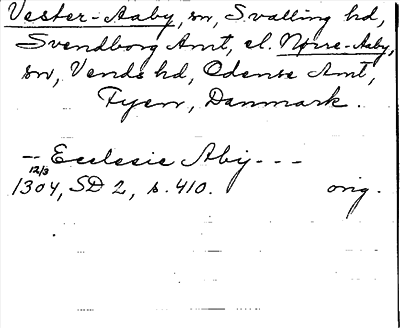 Vester-Aaby, sn, Salling hd,
Svendborg Amt, el. Nörre-Aaby,
sn, Vends hd, Odense Amt,
Fyen, Danmark.
-- Ecclesie Aby - - -
12/3
1304, SD 2, s. 410. orig.